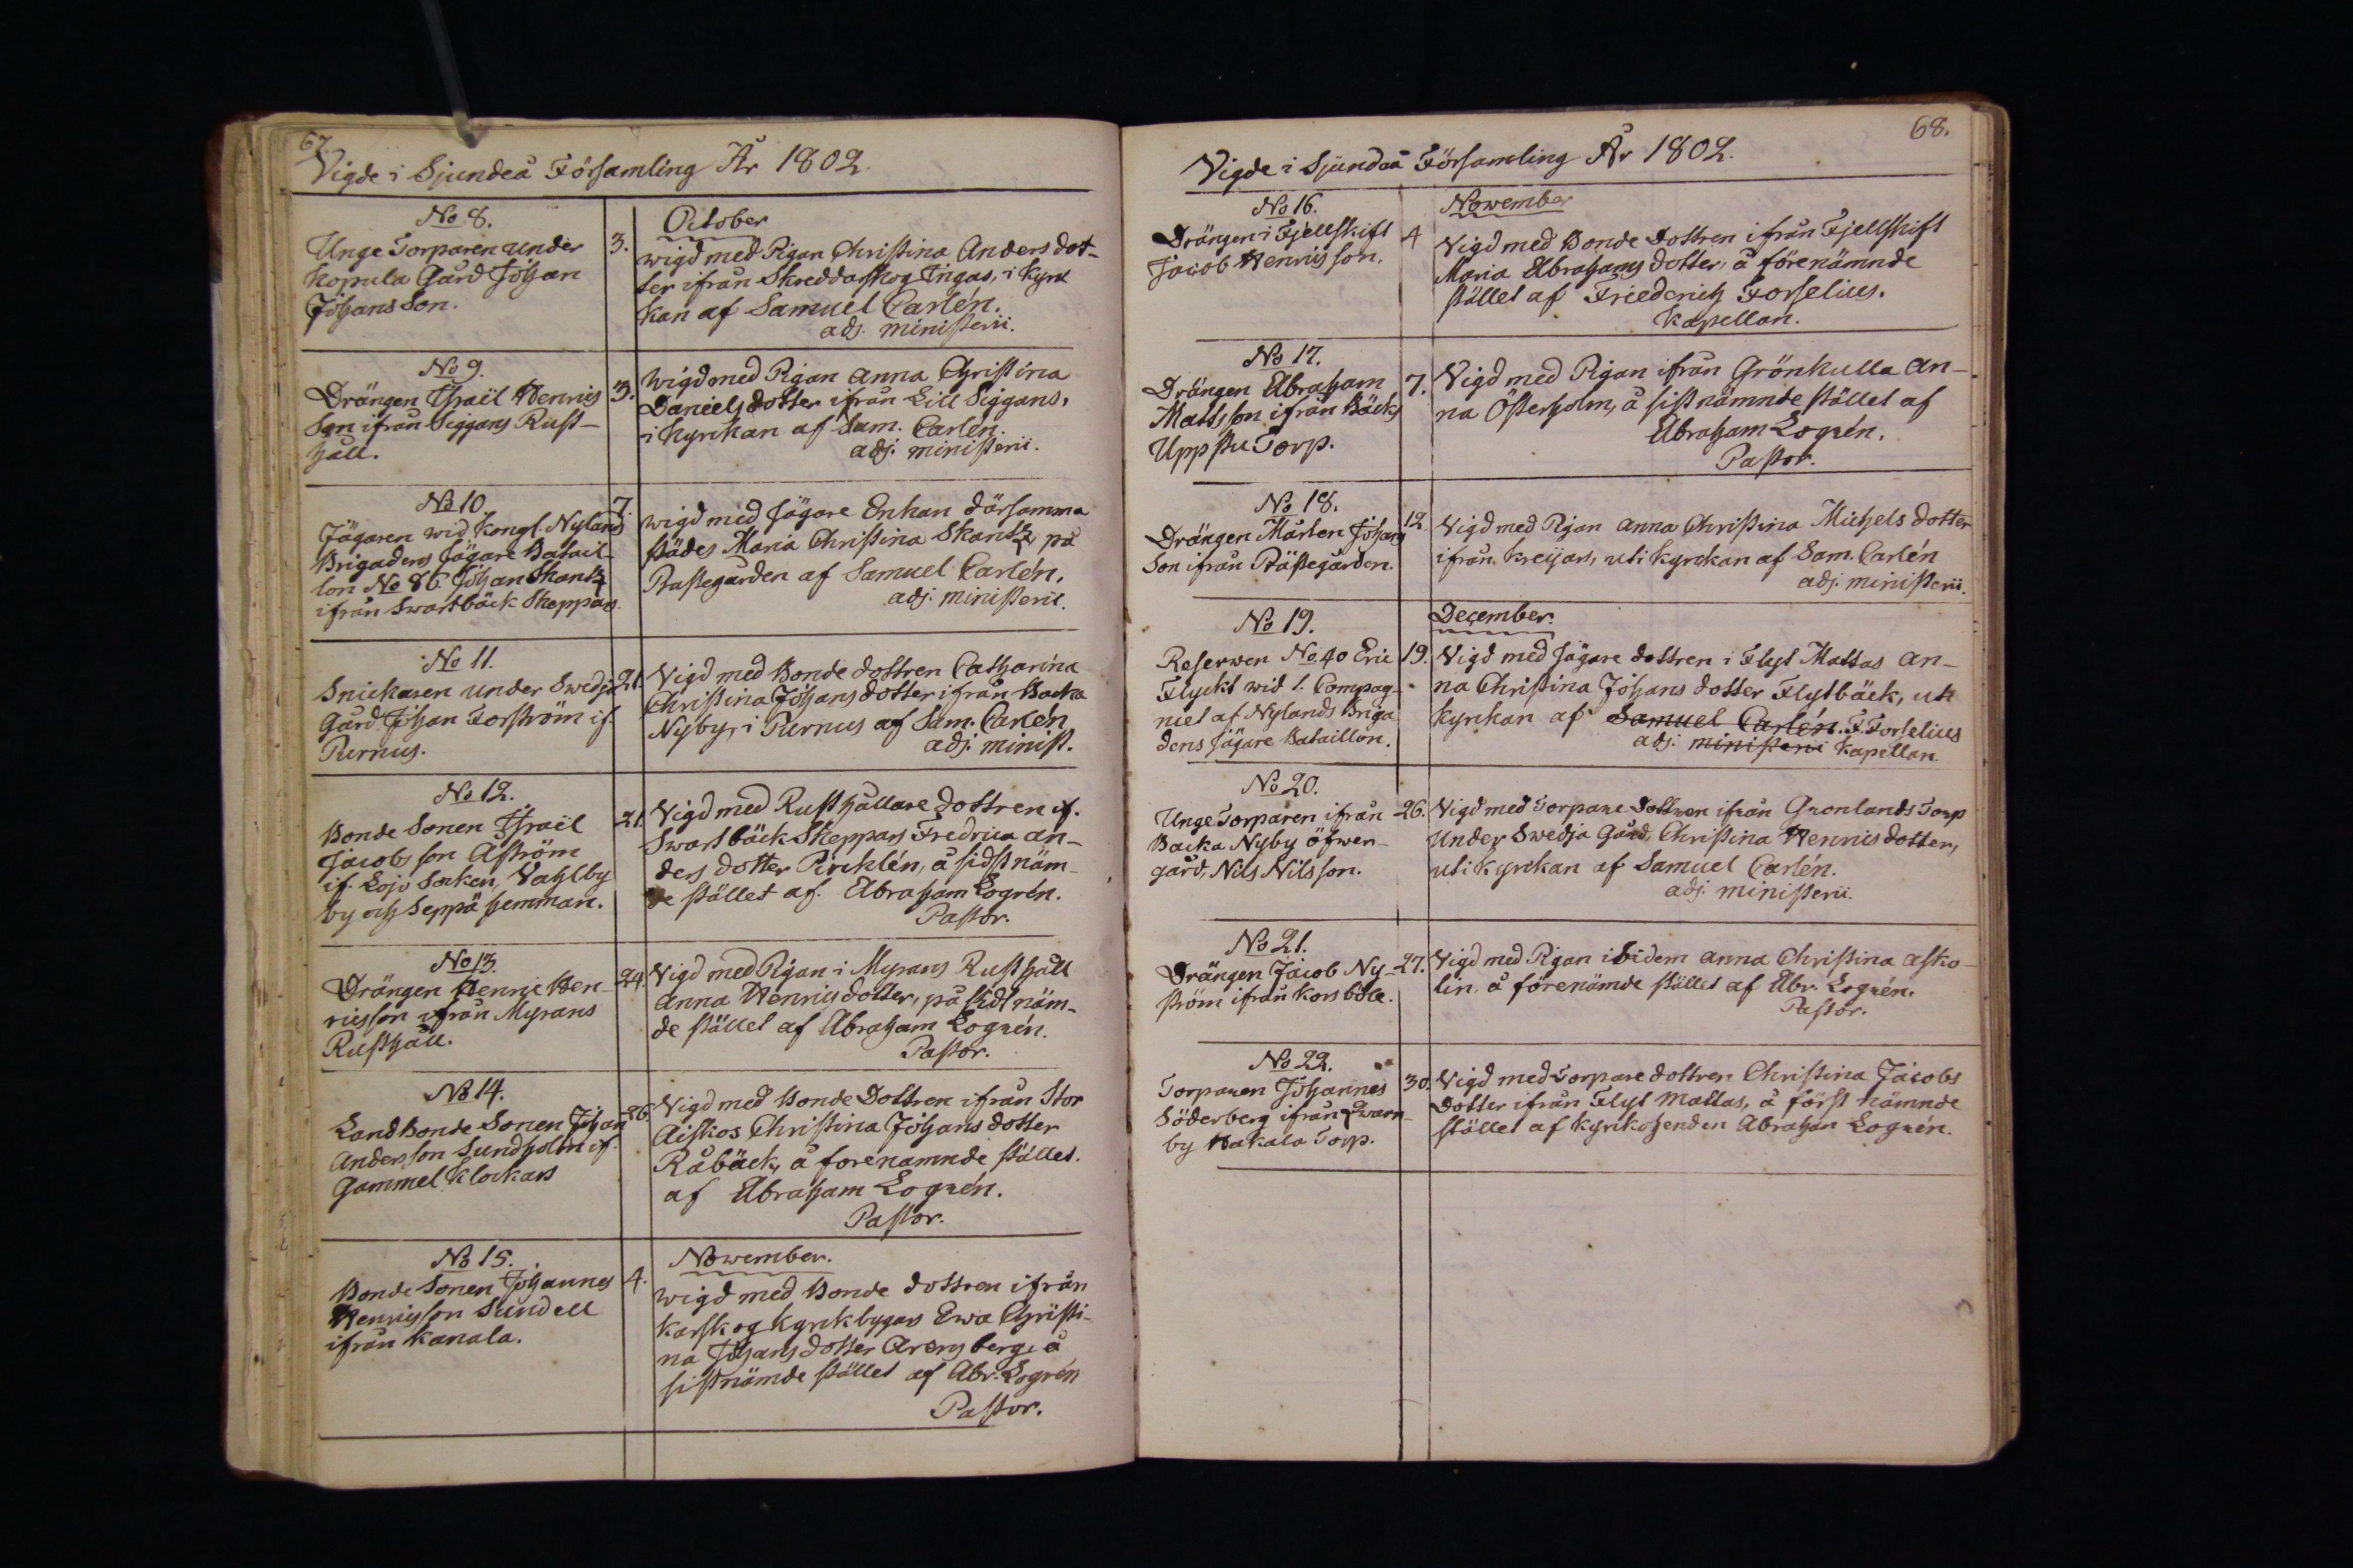 67.
Vigde i Sjundeå Församling År 1802.
No 8.
Unge Torparen under
Kopula Gård Johan
Johans Son.
3.
October
wigd med Pigan Christina Anders dot-
ter ifrån Skreddarskog Ingas, i Kyrk
kan af Samuel Carlén.
adj. ministerii.
No 9.
Drängen Israil Henrics
Son ifrån Siggans Rust-
håll.
3.
Wigd med Pigan Anna Christina
Daniels dotter ifrån Lill Siggans,
i Kyrckan af Sam. Carlén.
adj. ministerii.
No 10.
Jägaren wid Kongl. Nylands
Brigadens Jägare Batail-
lon No 86. Johan Skantz
ifrån Swartbäck Skeppars.
7.
wigd med Jägare Enkan därsamma
städes Maria Christina Skantz, på
Prästegården af Samuel Carlén.
adj. ministerii.
No 11.
Snickaren under Swedja
Gård Johan Forström if.
Purnus.
21.
Vigd med Bonde dottren Catharina
Christina Johans dotter ifrån Backa
Nyby, i Purnus af Sam. Carlén
adj. minist.
No 12.
Bonde Sonen Israël
Jacobs son Åström
if. Lojo Socken, Vahlby
by och Seppä hemman.
21.
Vigd med Rusthållare dottren if.
Swartbäck Skeppars Fredrica An-
ders dotter Pircklén, å sidstnäm-
de stället af Abraham Logrén.
Pastor.
No 13.
Drängen Henric Hen-
ricsson ifrån Myrans
Rusthåll.
24.
Vigd med Pigan i Myrans Rusthåll
Anna Henrics dotter, på sidstnäm-
de stället af Abraham Logrén.
Pastor.
No 14.
Landbonde Sonen Johan
Andersson Sundholm if.
Gammel Klockars
26.
Vigd med Bonde Dottren ifrån Stor
Aiskos Christina Johans dotter
Råbäck, å förenämnde stället.
af Abraham Logrén.
Pastor.
No 15.
Bonde Sonen Johannes
Henricsson Sundell
ifrån Kanala.
4.
Nowember.
wigd med Bonde dottren ifrån
Karskog Kyrkbygars Ewa Christi-
na Johans dotter Arensberg, å
sistnämde stället af Abr. Logrén
Pastor.
68.
Vigde i Sjundeå Församling År 1802.
No 16.
Drängen i Fjellskift
Jacob Henricsson.
4
Nowember
Vigd med Bonde Dottren ifrån Fjellskift
Maria Abrahams dotter, å förenämnde
stället af Friederich Forselius.
Kapellan.
No 17.
Drängen Abraham
Matsson ifrån Bäcks
Uppstu Torp.
7.
Vigd med Pigan ifrån Grönkulla An-
na Österholm, å sistnämnde stället af
Abraham Logrén.
Pastor.
No 18.
Drängen Mårten Johans
Son ifrån Prästegården.
12.
Vigd med Pigan Anna Christina Michels dotter
ifrån Kreijars, uti Kyrckan af Sam. Carlén
adj. ministerii.
No 19.
Reserwen No 40 Eric
Flyckt wid 1. Compag-
niet af Nylands Briga
dens Jägare Bataillon.
19.
December.
Vigd med Jägare dottren i Flyt Mattas An-
na Christina Johans dotter Flytbäck, uti
Kyrckan af Samuel Carlén. F. Forselius
adj. ministerii Kapellan.
No 20.
Unge Torparen ifrån
Backa Nyby öfwer-
gård, Nils Nilsson.
26.
Vigd med Torpare Dottren ifrån Gronlands Torp
Under Swedja Gård, Christina Henrics dotter,
uti Kyrckan af Samuel Carlén.
adj. ministerii.
No 21.
Drängen Jacob Ny-
ström ifrån Korsböle.
27.
Vigd med Pigan ibidem Anna Christina Asko-
lin å förenämde stället af Abr. Logrén.
Pastor.
No 22.
Torparen Johannes
Söderberg ifrån Qwarn-
by Hakala Torp.
30.
Vigd med Torpare dottren Christina Jacobs
Dotter ifrån Flyt Mattas, å först nämnde
stället af Kyrkoherden Abraham Logrén.